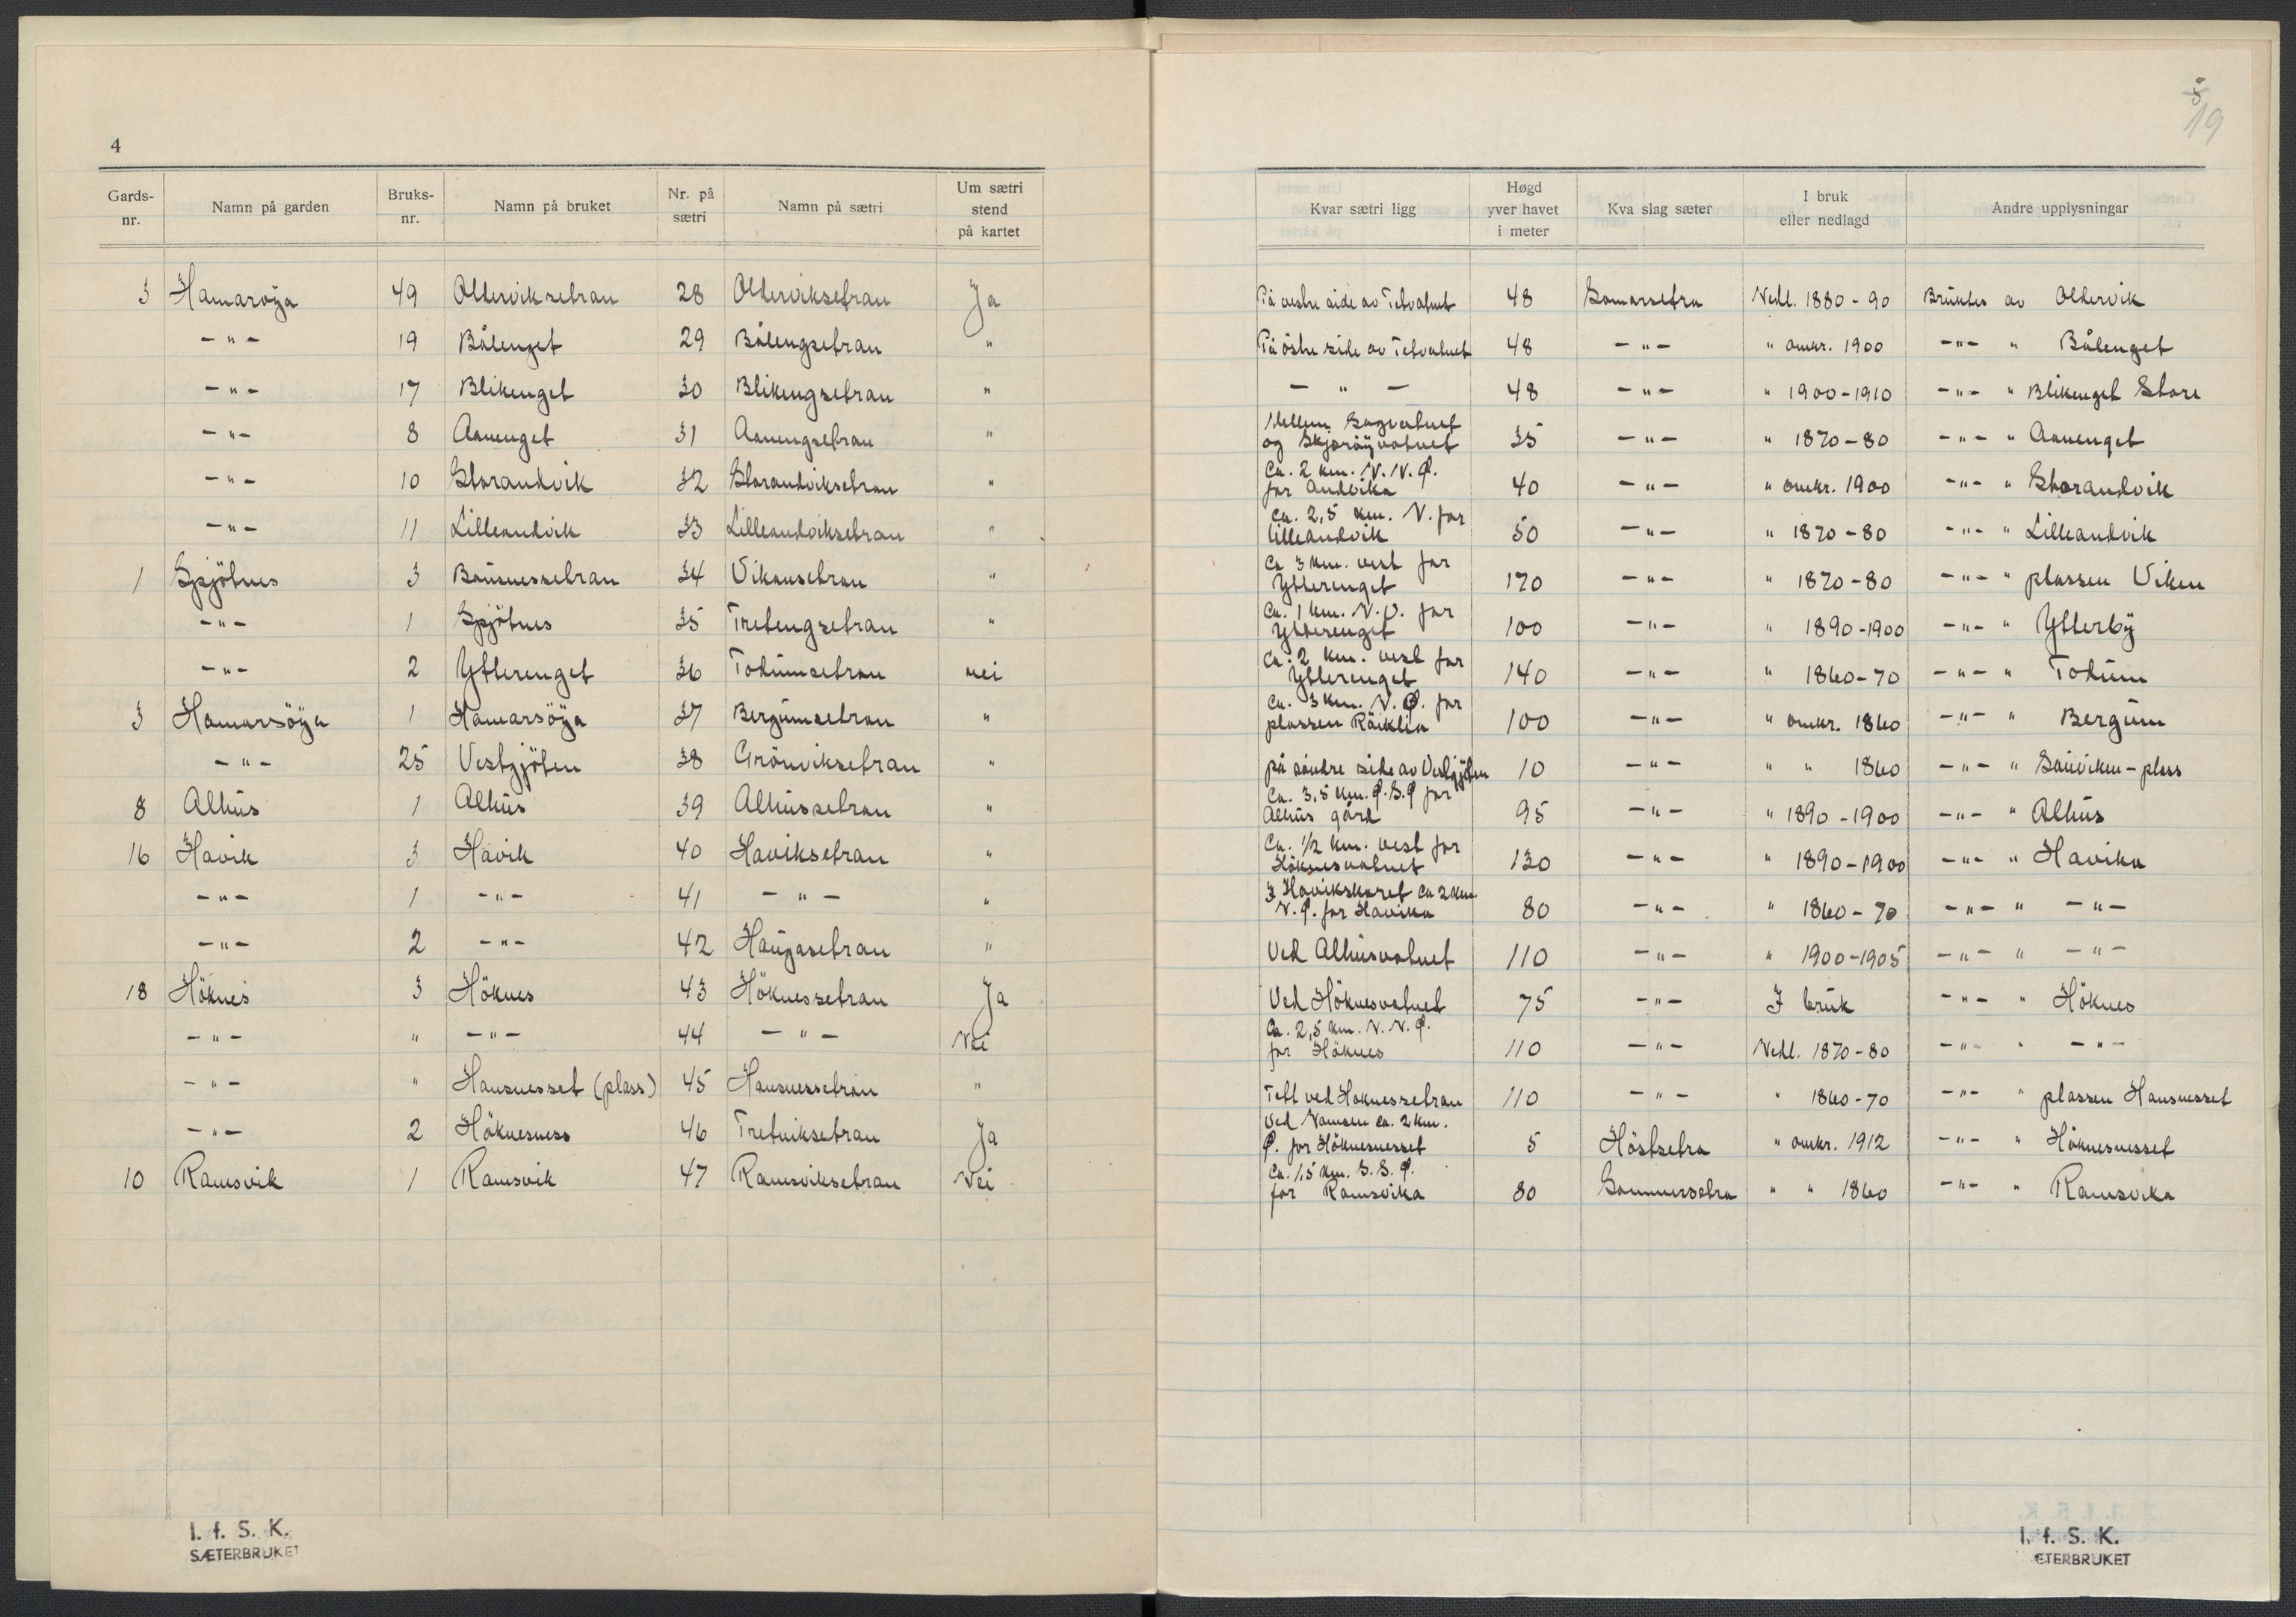 4
Gards-nr. Namn på garden Bruks-nr. Namn på bruket Nr. på sætri Namn på sætri Um sætri stend på kartet
3 Hamarøya 49 Olterviksetran 28 Olterviksetran Ja
-"- 19 Bålenget 29 Bålengsetran "
-"- 17 Blikenget 30 Blikengsetran "
-"- 8 Aanenget 31 Aanengsetran "
-"- 10 Storandvik 32 Storandviksetran "
-"- 11 Lilleandvik 33 Lilleandviksetran "
1 Spjötnes 3 Bausnessetran 34 Vikansetran "
-"- 1 Spjötnes 35 Tretengsetran "
-"- 2 Ytterenget 36 Totümsetran nei
3 Hamarsöya 1 Hamarsöya 37 Bergümsetran "
-"- 25 Vestgjöten 38 Grönviksetran "
8 Alhüs 1 Alhüs 39 Alhüssetran "
16 Havik 3 Havik 40 Haviksetran "
-"- 1 -"- 41 -"- "
-"- 2 -"- 42 Haügasetran "
18 Höknes 3 Höknes 43 Höknessetran Ja
-"- " -"- 44 -"- Nei
-"- " Hansnesset (plass) 45 Hansnessetran "
-"- 2 Höknesness 46 Tretviksetran Ja
10 Ramsvik 1 Ramsvik 47 Ramsviksetran Nei
I. f. S. K.
SÆTERBRUKET
5
19
Kvar sætri ligg Høgd yver havet i meter Kva slag sæter I bruk eller nedlagd Andre upplysningar
På vestre side av Tetvatnet 48 Somarsetra Nedl. 1880-90 Brüktes av Oltervik
På östre side av Tetvatnet 48 -"- " omkr. 1900 -"- " Bålenget
-"- 48 -"- " 1900-1910 -"- " Blikenget Store
Mellem Sagvatnet
og Skjaröyvatnet 35 -"- " 1870-80 -"- " Aanenget
Ca. 2 km. N.N.Ø.
for Andvika 40 -"- " omkr. 1900 -"- " Storandvik
Ca. 2,5 km. N. for
Lilleandvik 50 -"- " 1870-80 -"- " Lilleandvik
Ca 3 km. vest for
Ytterenget 170 -"- " 1870-80 -"- " plassen Viken
Ca. 1 km. N.V. for
Ytterenget 100 -"- " 1890-1900 -"- " Ytterby
Ca. 2 km. vest for
Ytterenget 140 -"- " 1860-70 -"- " Totüm
Ca. 3 km. N.Ø. for
plassen Råcklia 100 -"- " omkr. 1860 -"- " Bergüm
på söndre side av Vestgjöten 10 -"- " " 1860 -"- " Saüviken-plass
Ca. 3,5 km. Ø.S.Ø for
Alhüs gård 95 -"- " 1890-1900 -"- " Alhüs
Ca. 1/2 km. vest for
Höknesvatnet 130 -"- " 1890-1900 -"- " Havika
I Havikskaret ca 2 km.
N.Ø. for Havika 80 -"- " 1860-70 -"- " -"-
Ved Alhüsvatnet 110 -"- " 1900-1905 -"- " -"-
Ved Höknesvatnet 75 -"- I brük -"- " Höknes
Ca. 2,5 km. N.N.Ø.
for Höknes 110 -"- Nedl. 1870-80 -"- " -"-
Tett ved Höknessetran 110 -"- " 1860-70 -"- " plassen Hansnesset
Ved Namsen ca. 2 km.
Ø. for Höknesnesset 5 Höstsetra " omkr. 1912 -"- " Höknesnesset
Ca. 1,5 km. S.S.Ø.
for Ramsvika 80 Sommersetra " " 1860 -"- " Ramsvika
I. f. S. K.
ETERBRUKET